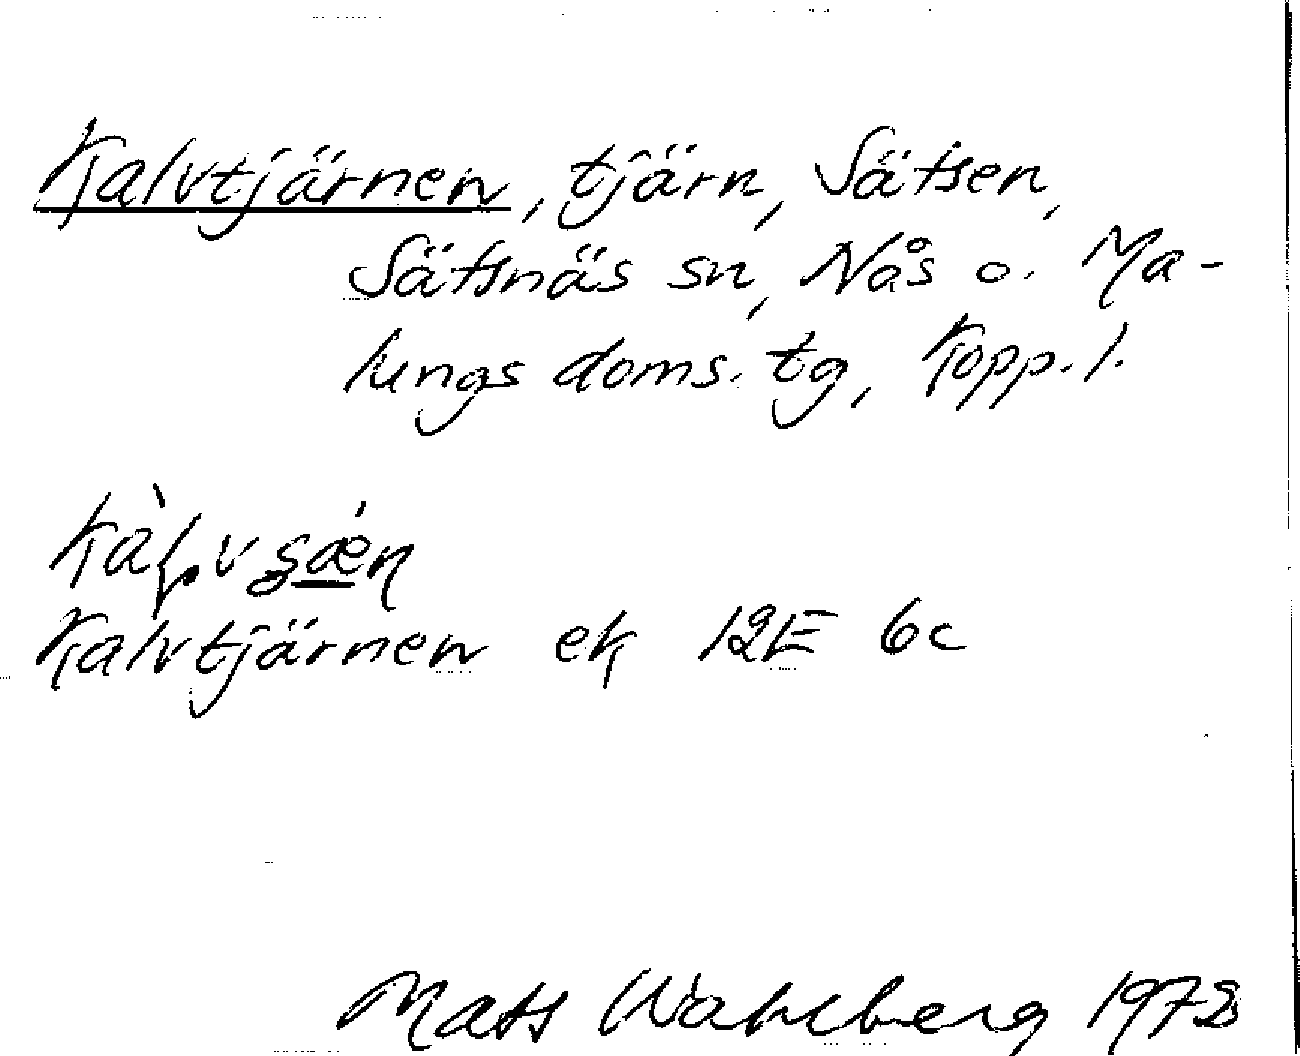 Kalvtjärnen, tjärn, Sätsen,
Sätsnäs sn, Nås o. Ma-
lungs doms. tg, Kopp. l.
Kalvtjärnen ek 12E 6c
Mats Wahlberg 1972